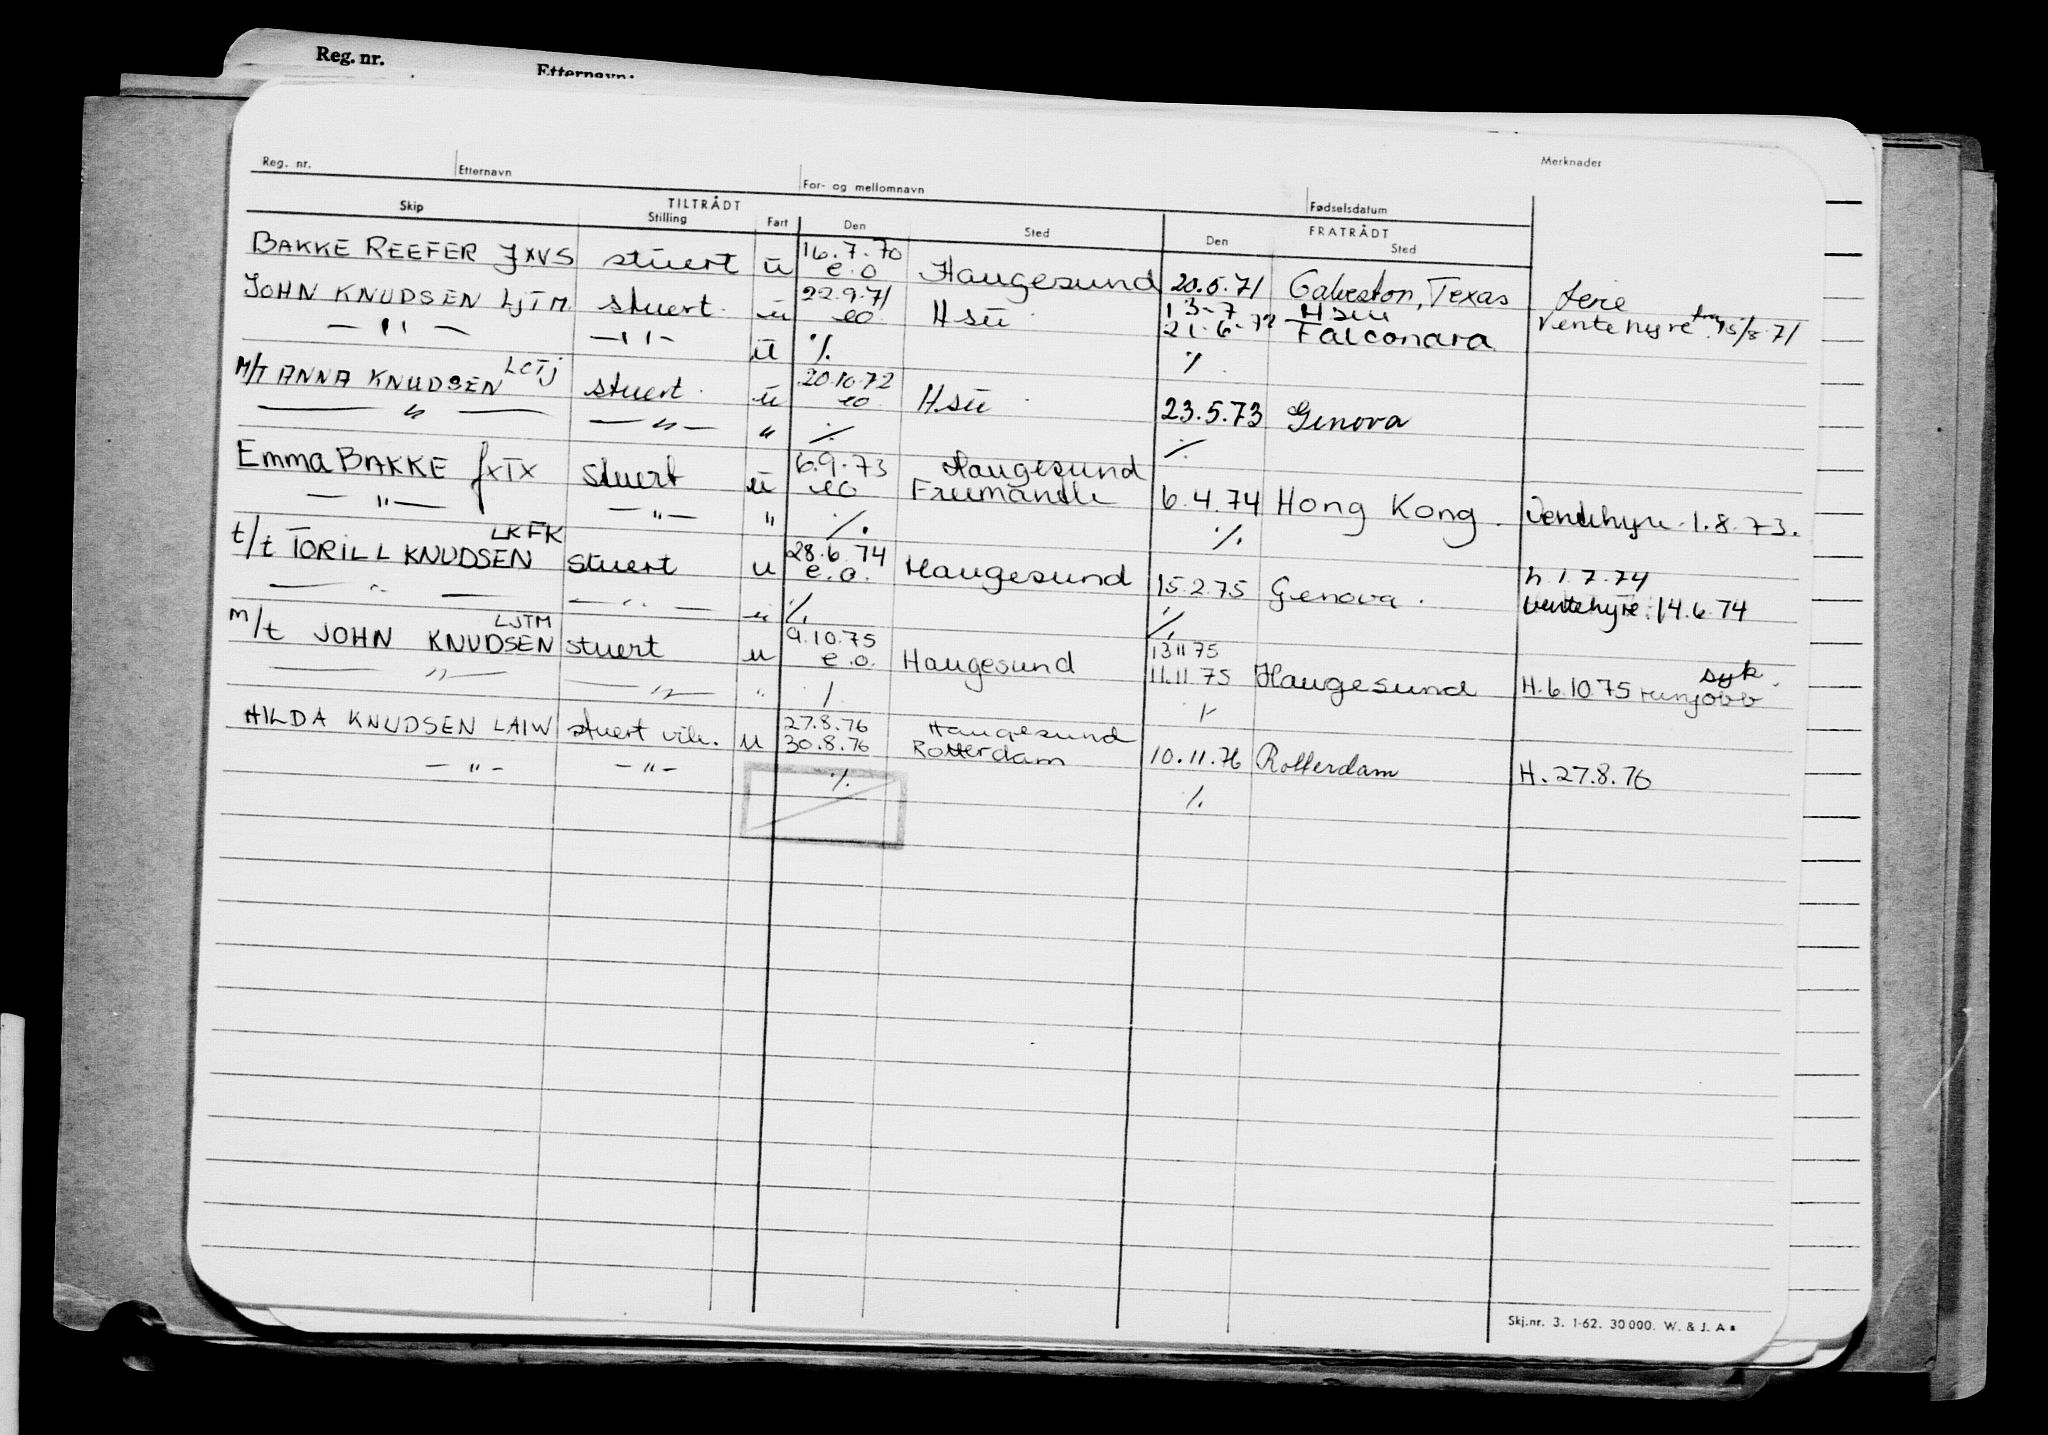 Reg. nr.
Etternavn:
Reg. nr. Etternavn For- og mellomnavn Fødselsdatum Merknader
TILTRÅDT FRATRÅDT
Skip Stilling Fart Den Sted Den Sted
BAKKE REEFER JXVS stuert u 16.7.70 e.o Haugesund 20.5.71 Galveston, Texas ferie
JOHN KNUDSEN LJTM stuert. u 22.9.71 eo. Hsu 13-7 Hsu
21-6-72 Falconara Ventehyre fra 15/8 71
— " — — " — u % %
M/T ANNA KNUDSEN LCTJ stuert. u 20.10.72 eo. Hsu 23.5.73 Genova
— " — — " — " % %
Emma BAKKE JXTX Stuert u 6.9.73 eo Haugesund
Fremantle 6.4.74 Hong Kong. Ventehyre 1.8.73.
— " — — " — " %. %.
t/t TORILL KNUDSEN LKFK stuert u 28.6.74 e.o. Haugesund 15.2.75 Genova. h. 1.7.74
Ventehyre: 14.6.74
— " — — " — u %. %.
m/t JOHN KNUDSEN LJTM stuert u 9.10.75 e.o. Haugesund 13 11 75
11.11.75 Haugesund H. 6.10.75 syk.
— " — — " — "
HILDA KNUDSEN LAIW stuert vik. u 27.8.76 Haugesund
30.8.76 Rotterdam 10.11.76 Rotterdam H. 27.8.76
— " — — " — % %
Skj.nr. 3. 1-62. 30000. W. & J. A